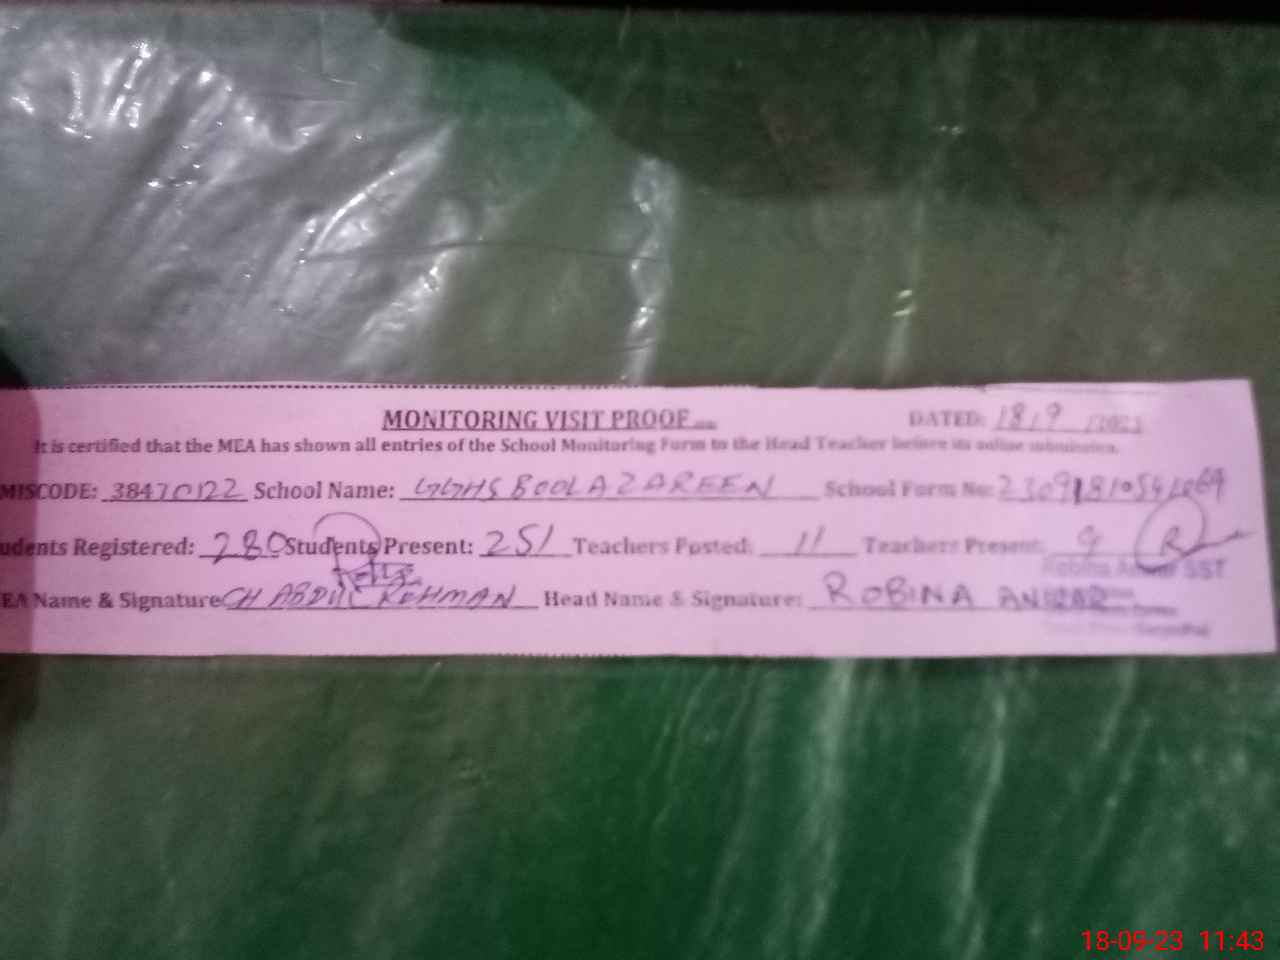 MONITORING VISIT PROOF DATED: 18/9 /2023
It is certified that the MEA has shown all entries of the School Monitoring Form to the Head Teacher before its online submission.
MISCODE: 38470122 School Name: GGHS BOOLA ZAREEN School Form No:
udents Registered: 280 Students Present: 251 Teachers Posted: 11 Teachers Present: 9
EA Name & Signature CH ABDUL REHMAN Head Name & Signature: ROBINA ANWAR
Robina Anwar SST
18-09-23 11:43